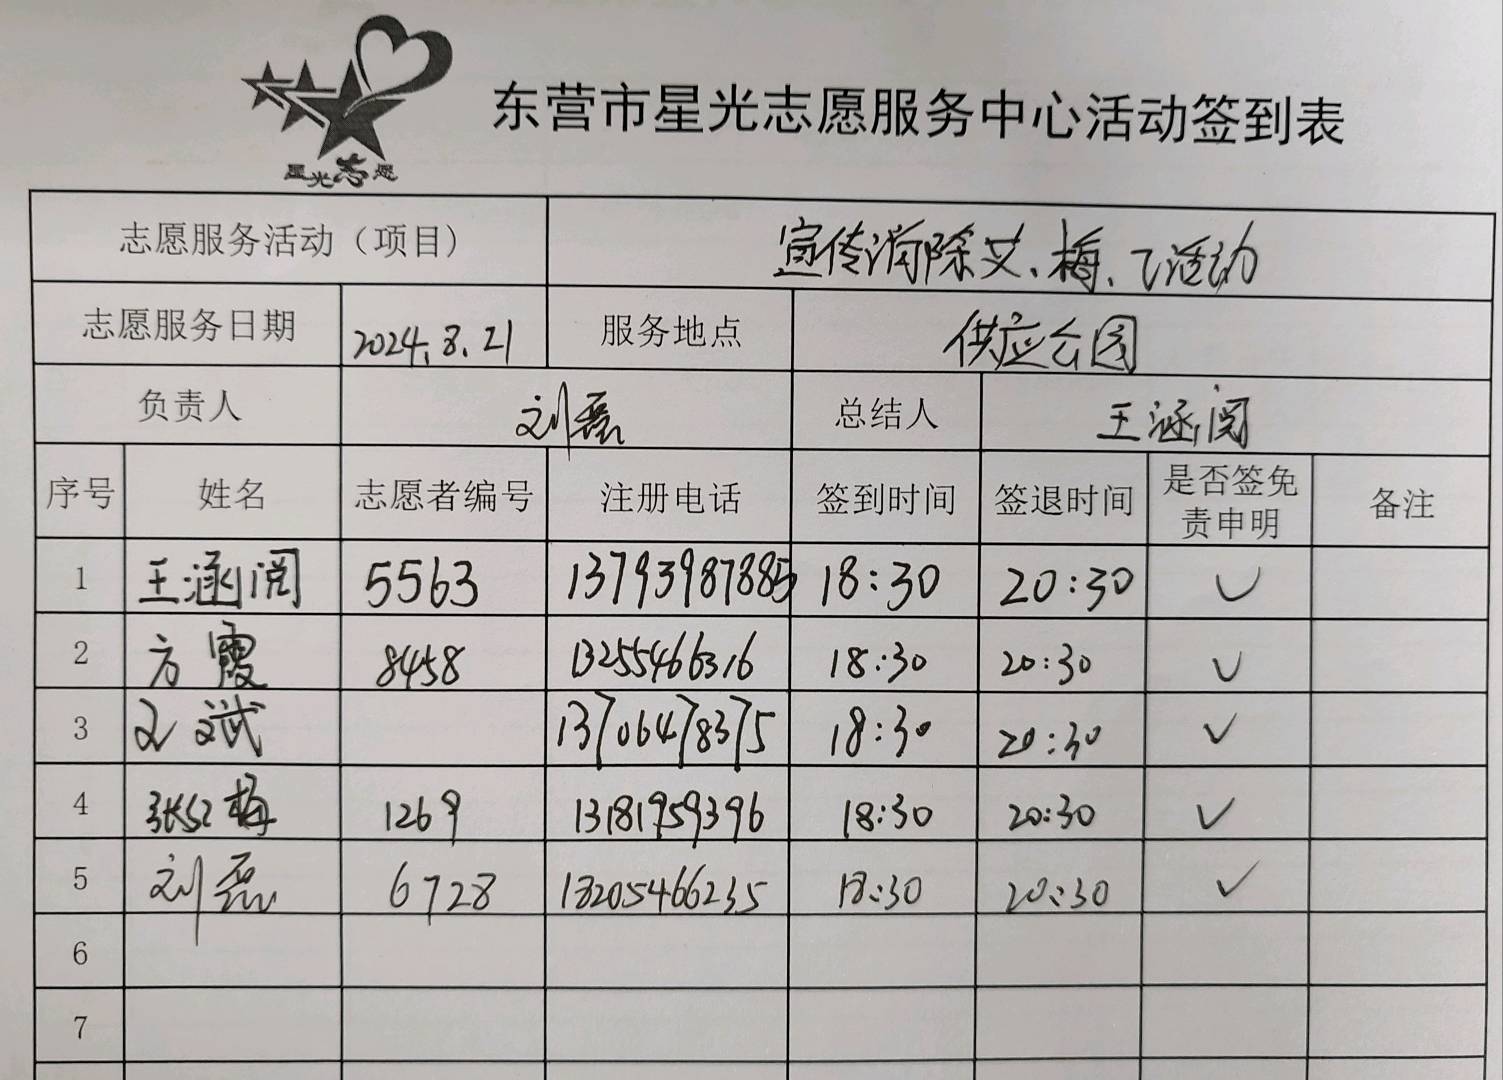 星光志愿
东营市星光志愿服务中心活动签到表
志愿服务活动（项目） 宣传消除艾、梅、乙活动
志愿服务日期 2024.8.21 服务地点 供应公园
负责人 刘磊 总结人 王涵阅
序号 姓名 志愿者编号 注册电话 签到时间 签退时间 是否签免责申明 备注
1 王涵阅 5563 13793987885 18:30 20:30 ✓
2 方霞 8458 13255466316 18:30 20:30 ✓
3 文斌 13706478375 18:30 20:30 ✓
4 张红梅 1269 13181959396 18:30 20:30 ✓
5 刘磊 6728 18205466235 18:30 20:30 ✓
6
7